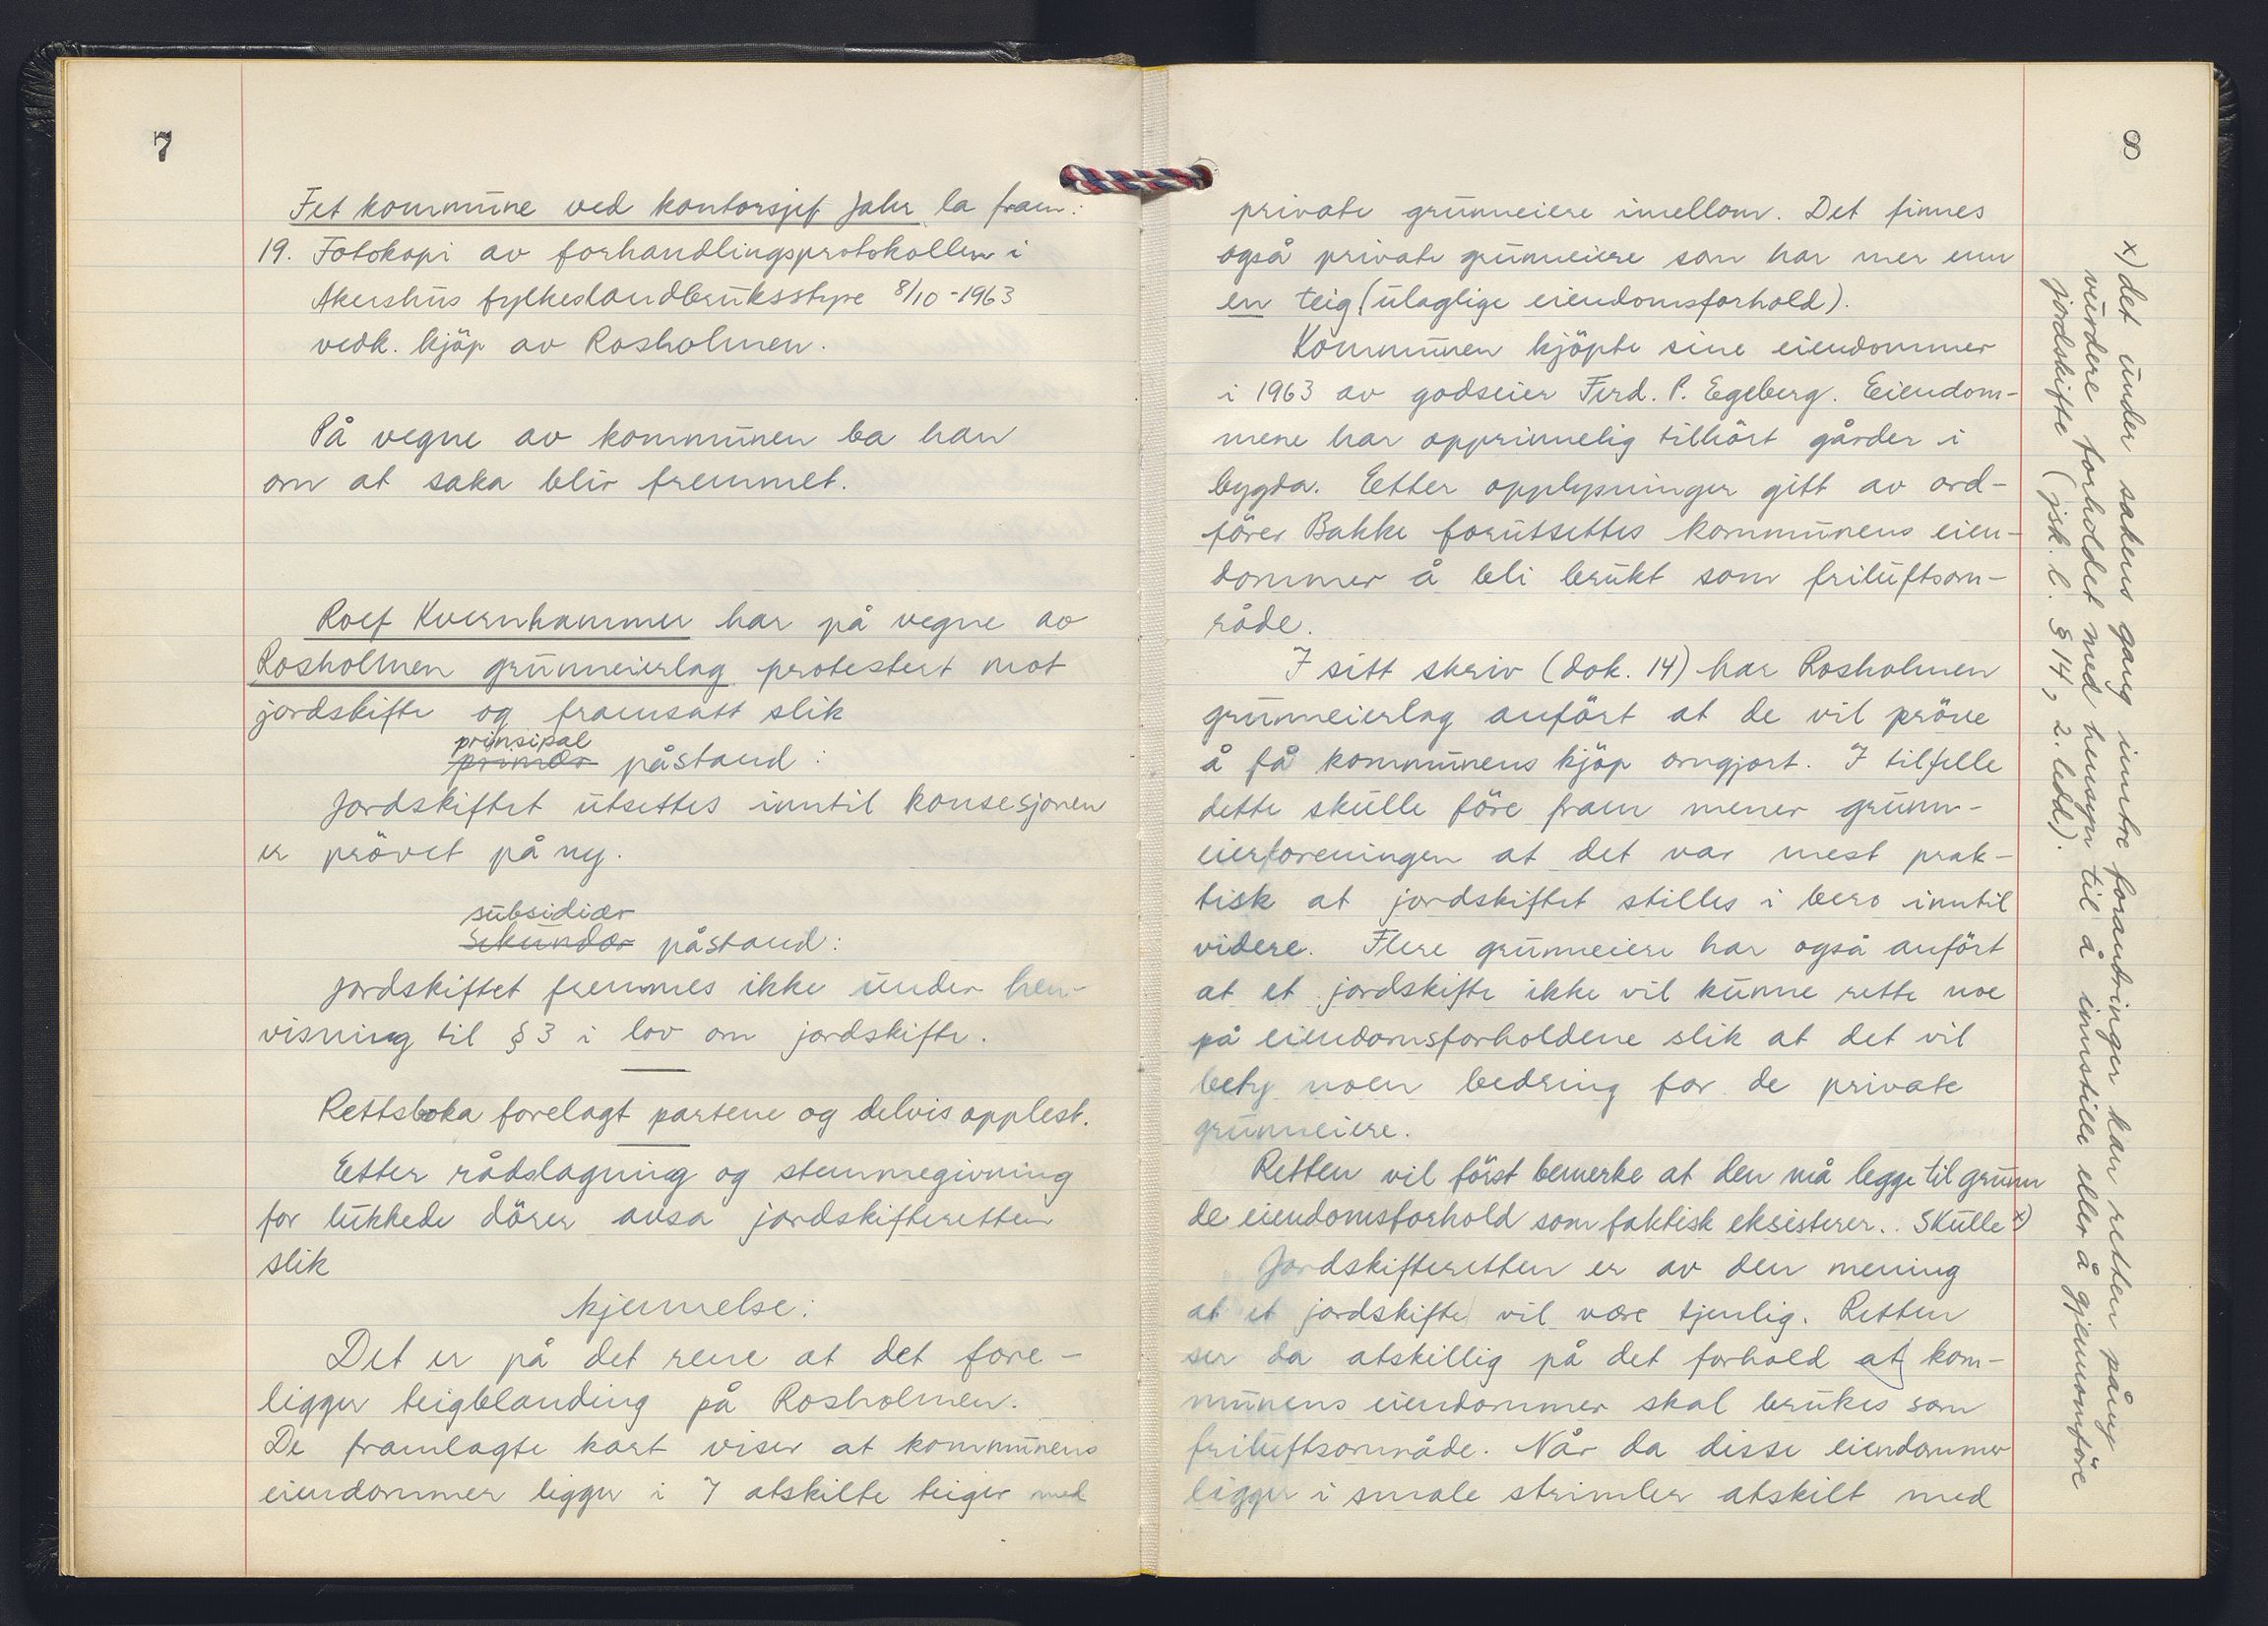 7
Fet kommune ved kontorsjef Jahr la fram:
19. Fotokopi av forhandlingsprotokollen i
Akershus fylkeslandbruksstyre 8/10-1963
vedk. kjöp av Rosholmen.
På vegne av kommunen ba han
om at saka blir fremmet.
Rolf Kvernhammer har på vegne av
Rosholmen grunneierlag protestert mot
jordskifte og framsatt slik
prinsipal
primær påstand:
Jordskiftet utsettes inntil konsesjonen
er prövet på ny.
subsidiær
sekundær påstand:
Jordskiftet fremmes ikke under hen-
visning til § 3 i lov om jordskifte.
Rettsboka forelagt partene og delvis opplest.
Etter rådslagning og stemmegivning
for lukkede dörer avsa jordskifteretten
slik
kjennelse:
Det er på det rene at det fore-
ligger teigblanding på Rosholmen.
De framlagte kart viser at kommunens
eiendommer ligger i 7 atskilte teiger med
8
private grunneiere imellom. Det finnes
også private grunneiere som har mer enn
en teig (ulaglige eiendomsforhold).
Kommunen kjöpte sine eiendommer
i 1963 av godseier Ferd. P. Egeberg. Eiendom-
mene har opprinnelig tilhört gårder i
bygda. Etter opplysninger gitt av ord-
förer Bakke forutsettes kommunens eien-
dommer å bli brukt som friluftsom-
råde.
I sitt skriv (dok. 14) har Rosholmen
grunneierlag anfört at de vil pröve
å få kommunens kjöp omgjort. I tilfelle
dette skulle före fram mener grunn-
eierforeningen at det var mest prak-
tisk at jordskiftet stilles i bero inntil
videre. Flere grunneiere har også anfört
at et jordskifte ikke vil kunne rette noe
på eiendomsforholdene slik at det vil
bety noen bedring for de private
grunneiere.
Retten vil först bemerke at den må legge til grunn
de eiendomsforhold som faktisk eksisterer.. Skulle x)
Jordskifteretten er av den mening
at et jordskifte vil være tjenlig. Retten
ser da atskillig på det forhold at kom-
munens eiendommer skal brukes som
friluftsområde. Når da disse eiendommer
ligger i smale strimler atskilt med
x) det under sakens gang inntre forandringer kan retten påny
vurdere forholdet med hensyn til å innstille eller å gjennomföre
jordskifte (jsk. l. § 14, 2. ledd).